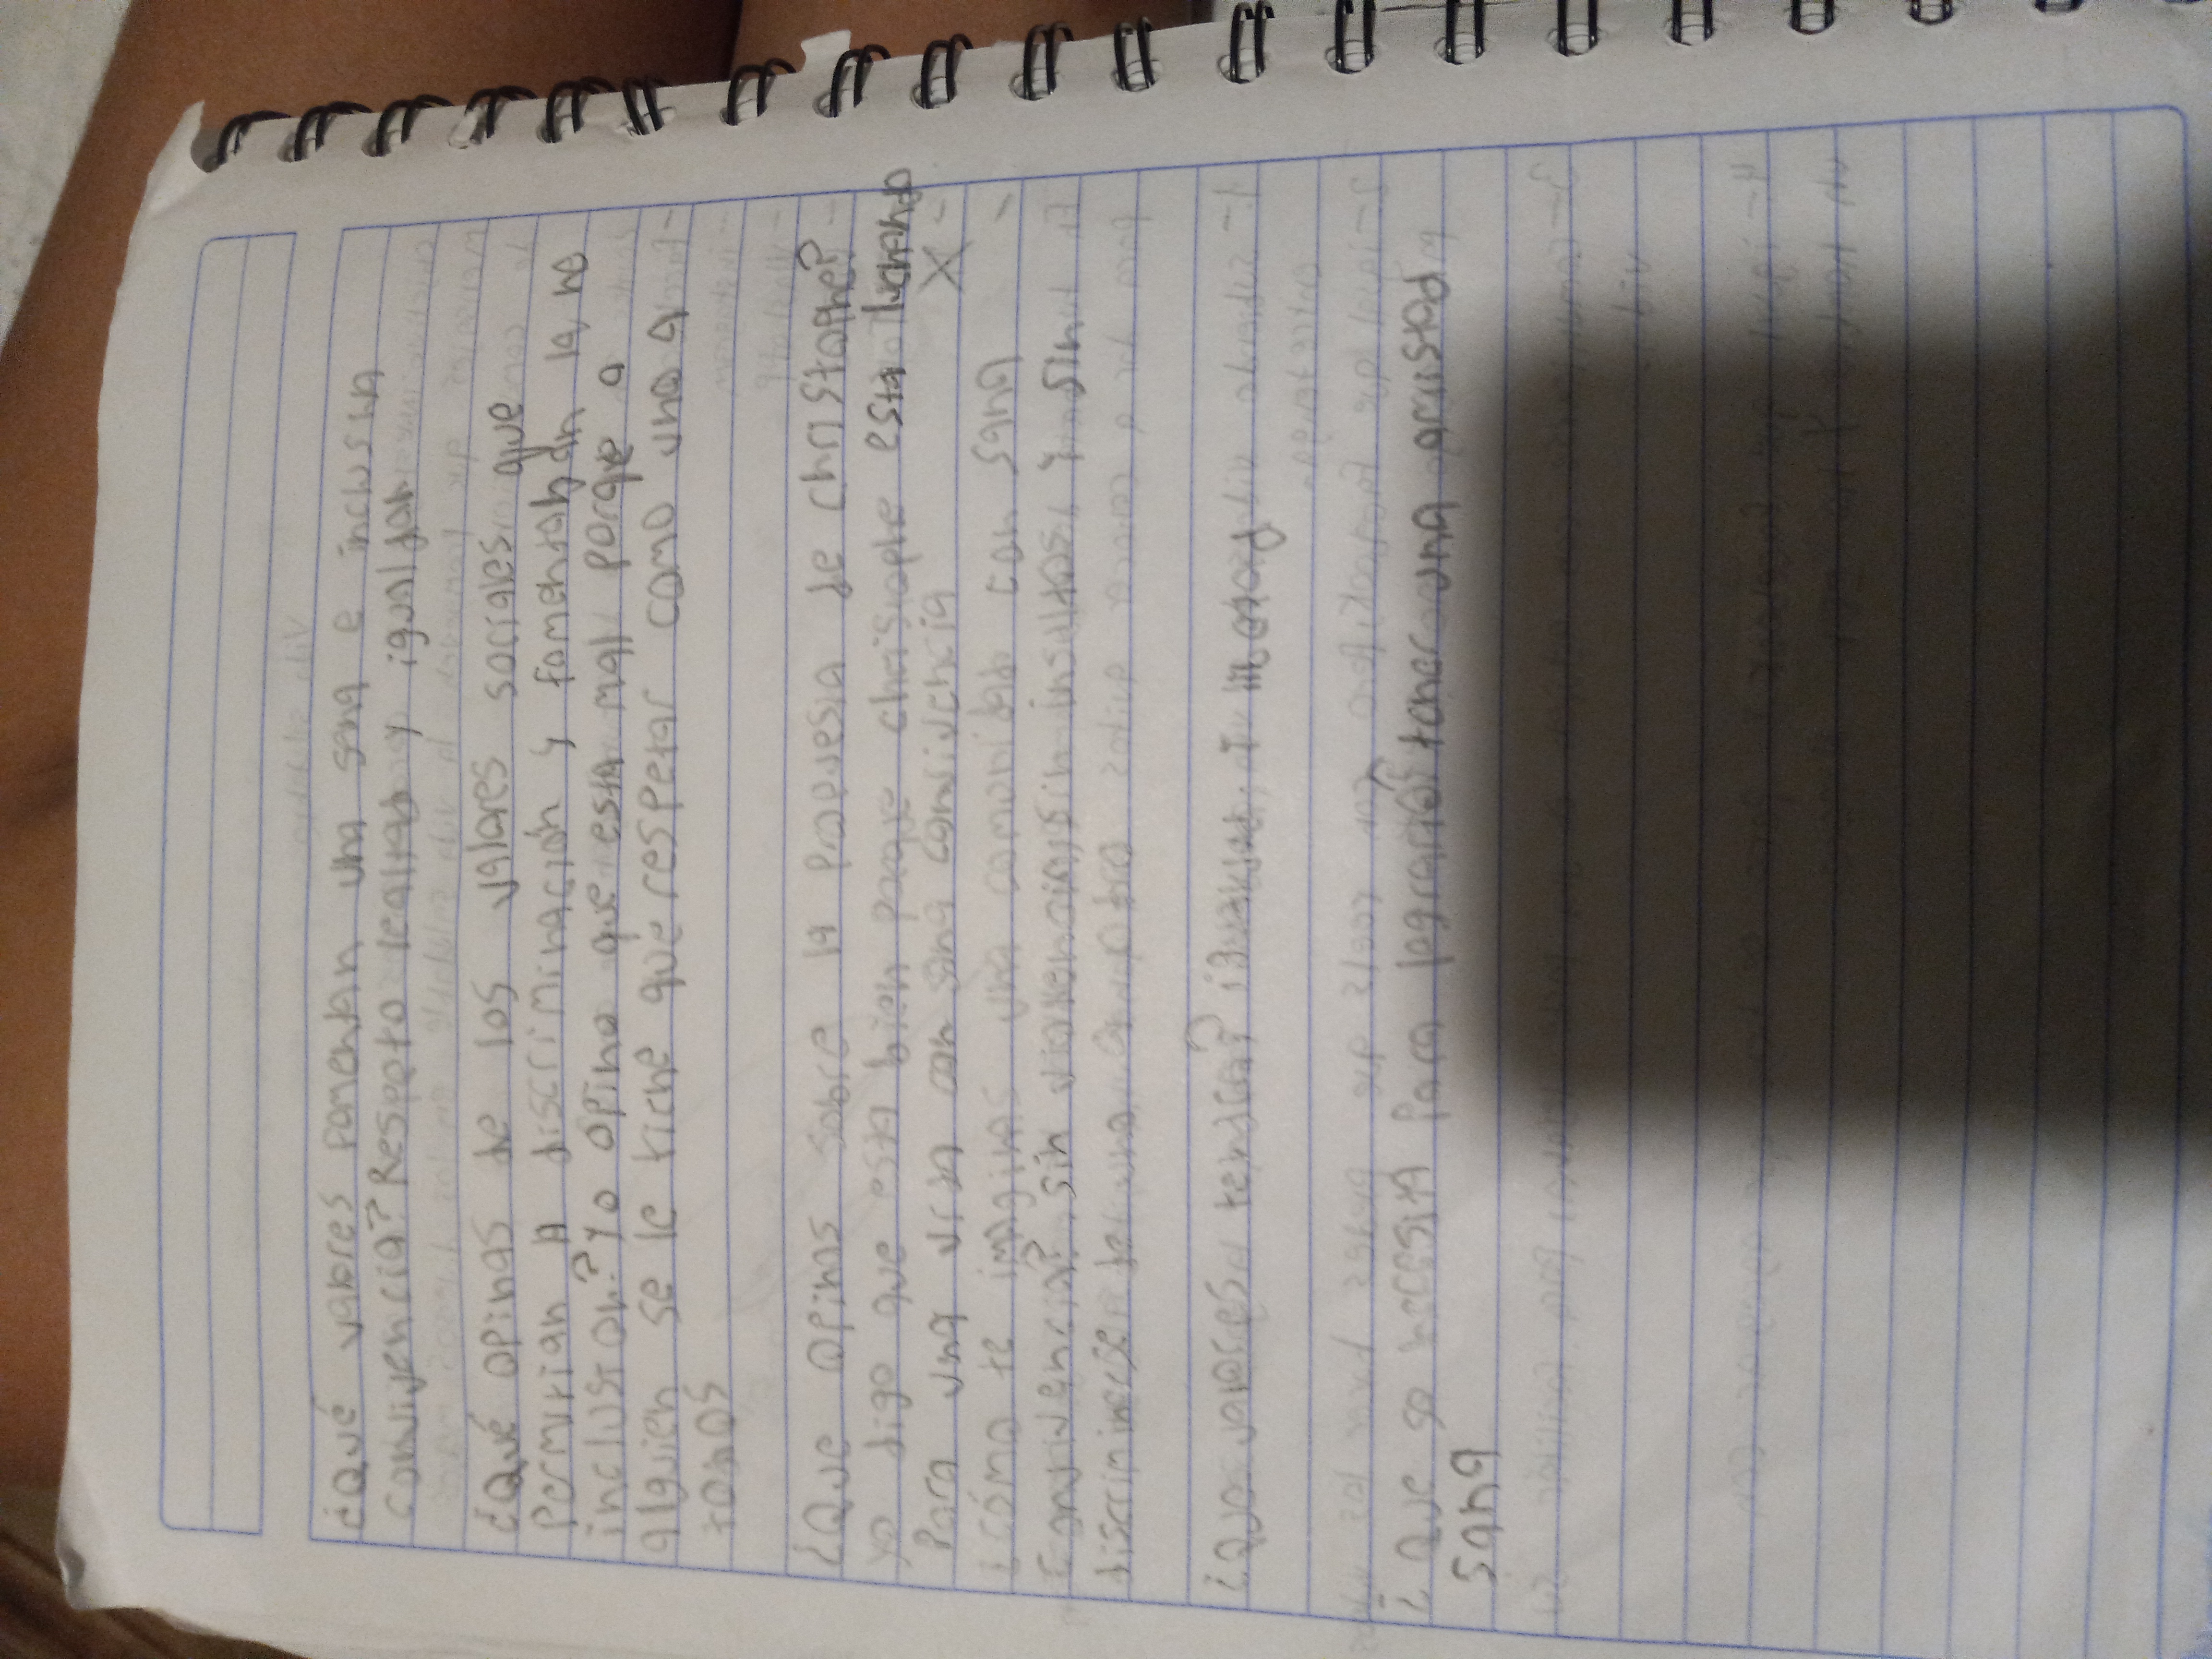 ¿Qué valores Fomentan una sana e inclusiva
convivencia? Respeto lealtad y igualdad
¿Qué opinas de los valares sociales que
Permitian A discriminación y fomentaban la no
inclusion? Yo opino que esta mal porque a
alguien se le tiene que respetar como uno a
todos
¿Que opinas sobre la propuesta de christophe?
yo digo que esta bien porque christophe esta luchando
Para una vida con sana convivencia X
¿cómo te imaginas una comunidad con sana
Convivencia? sin violencia, sin insultos y sin
discriminarse
¿Que valores tendrca? igualdad,
¿Que se necesita Para lograrlo? tener una amistad
sana